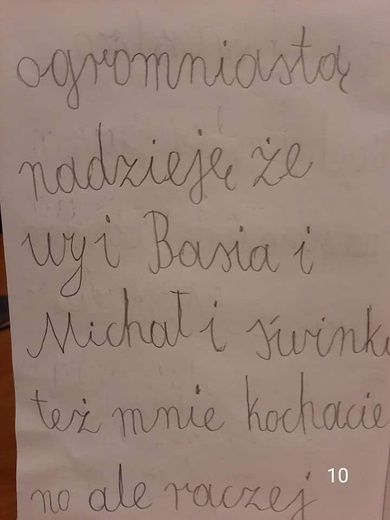 ogromniastą
nadzieję że
wy i Basia i
Michał i świnki
też mnie kochacie
no ale raczej
10